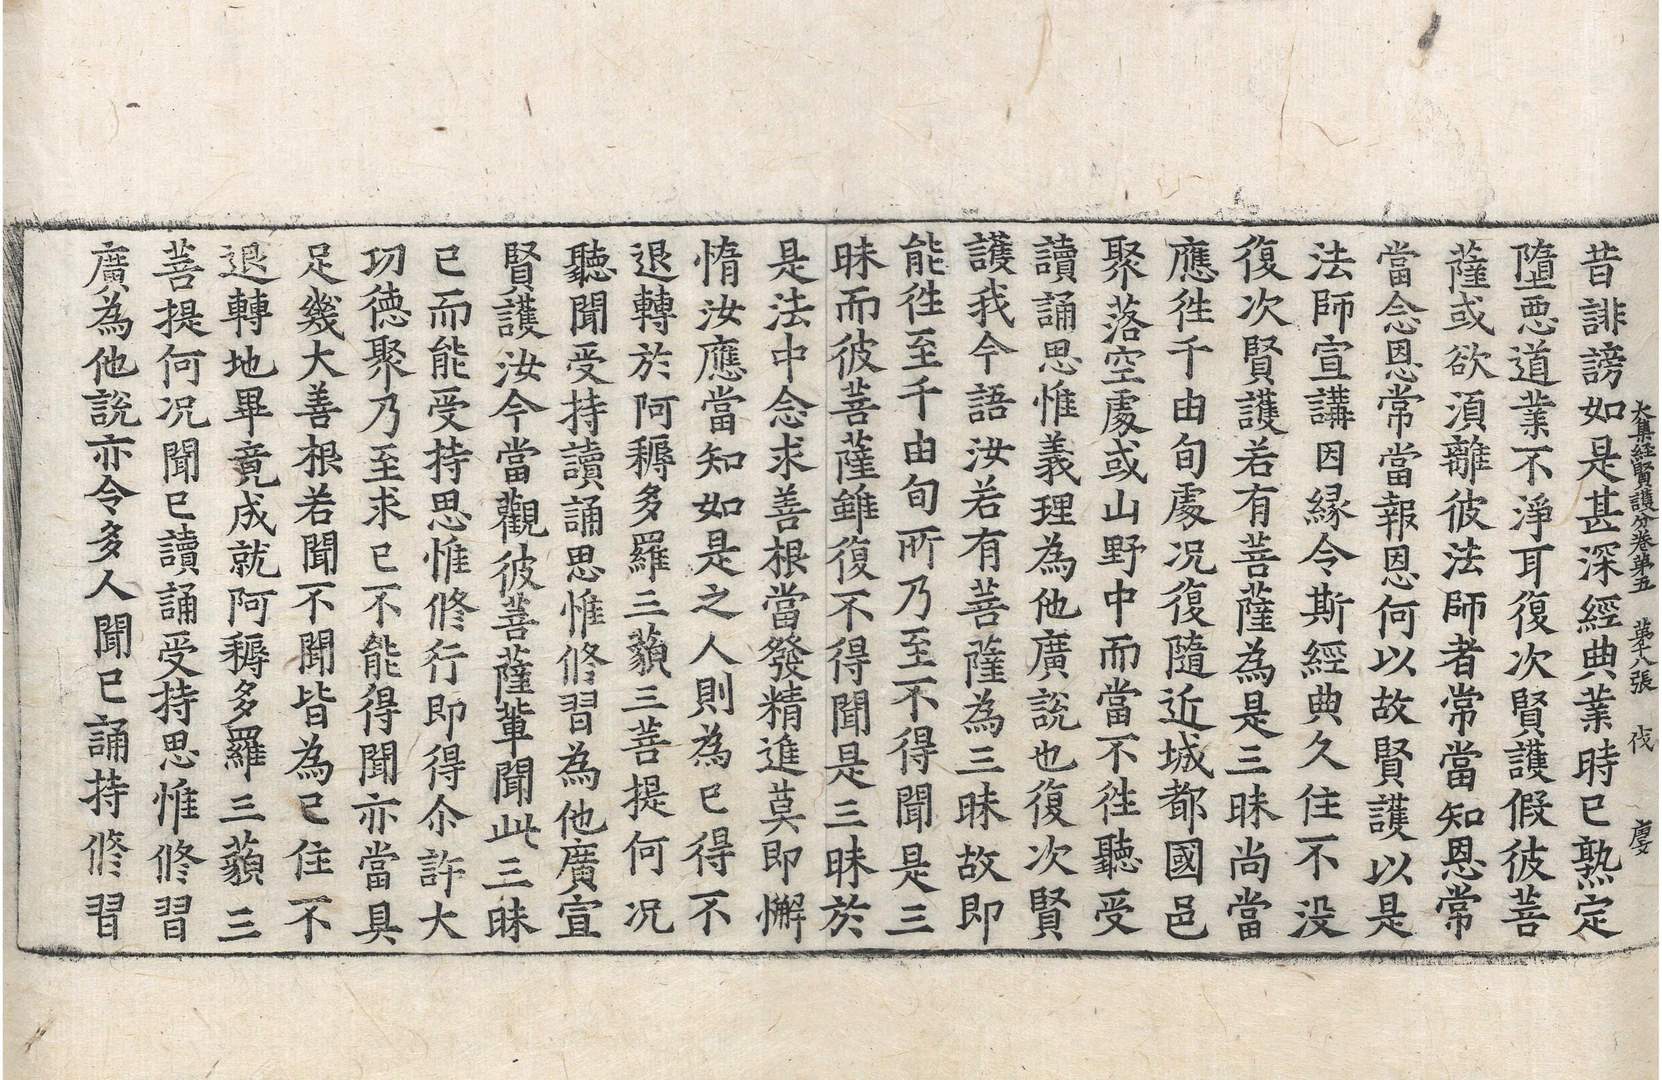 大集經賢護分卷第五　第十八張　伐　虔
昔誹謗如是甚深經典業時已熟定
墮惡道業不淨耳復次賢護假彼菩
薩或欲湏離彼法師者常當知恩常
當念恩常當報恩何以故賢護以是
法師宣講因緣令斯經典久住不没
復次賢護若有菩薩為是三昧尚當
應徃千由旬處况復隨近城都國邑
聚落空處或山野中而當不徃聽受
讀誦思惟義理為他廣說也復次賢
護我今語汝若有菩薩為三昧故即
能徃至千由旬所乃至不得聞是三
昧而彼菩薩雖復不得聞是三昧於
是法中念求善根當發精進莫即懈
惰汝應當知如是之人則為已得不
退轉於阿耨多羅三藐三菩提何况
聽聞受持讀誦思惟修習為他廣宣
賢護汝今當觀彼菩薩輩聞此三昧
已而能受持思惟修行即得尒許大
功德聚乃至求已不能得聞亦當具
足幾大善根若聞不聞皆為已住不
退轉地畢竟成就阿耨多羅三藐三
菩提何况聞已讀誦受持思惟修習
廣為他說亦令多人聞已誦持修習